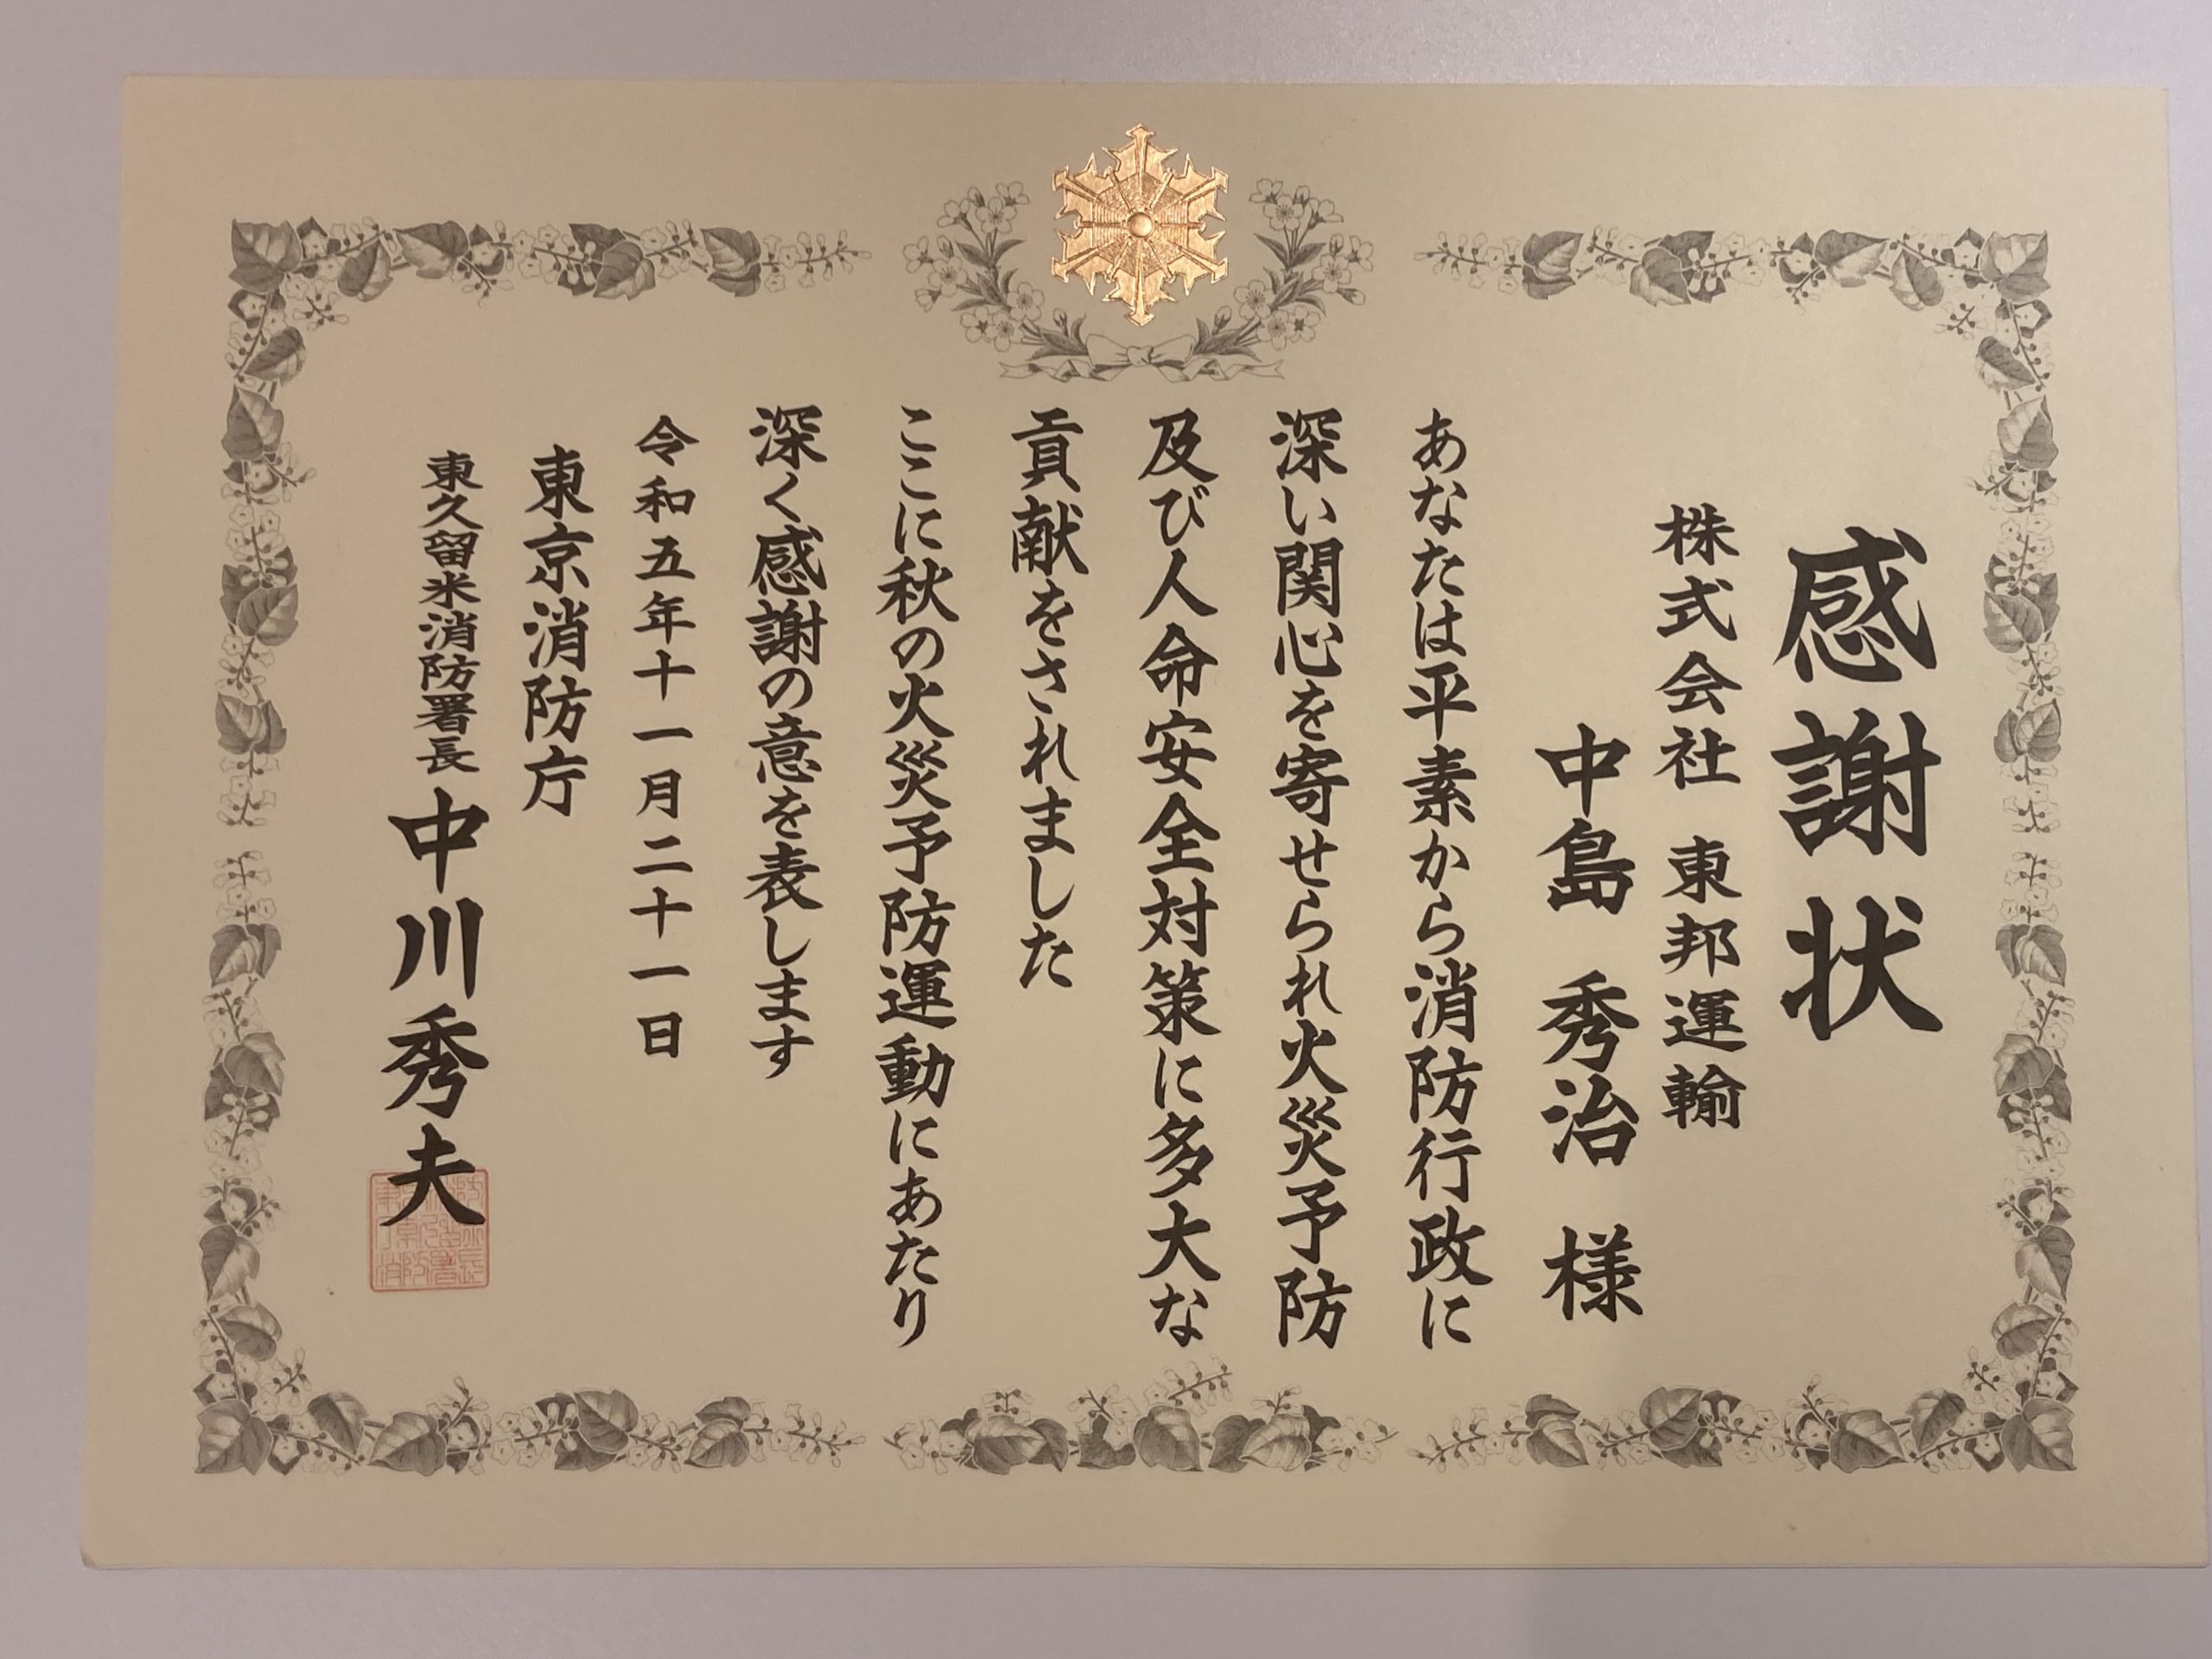 感謝状
株式会社 東邦運輸
中島 秀治 様
あなたは平素から消防行政に
深い関心を寄せられ火災予防
及び人命安全対策に多大な
貢献をされました
ここに秋の火災予防運動にあたり
深く感謝の意を表します
令和五年十一月二十一日
東京消防庁
東久留米消防署長 中川秀夫